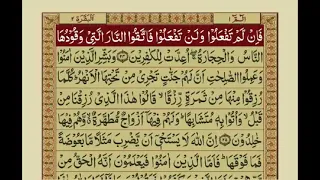 الٓمّٓ ١ البقرة ٢
فَاِنْ لَّمْ تَفْعَلُوْا وَلَنْ تَفْعَلُوْا فَاتَّقُوا النَّارَ الَّتِیْ وَقُوْدُهَا
النَّاسُ وَالْحِجَارَةُ اُعِدَّتْ لِلْكٰفِرِیْنَ ﴿۲۴﴾ وَبَشِّرِ الَّذِیْنَ اٰمَنُوْا
وَعَمِلُوا الصّٰلِحٰتِ اَنَّ لَهُمْ جَنّٰتٍ تَجْرِیْ مِنْ تَحْتِهَا الْاَنْهٰرُ كُلَّمَا
رُزِقُوْا مِنْهَا مِنْ ثَمَرَةٍ رِّزْقًا قَالُوْا هٰذَا الَّذِیْ رُزِقْنَا مِنْ
قَبْلُ وَاُتُوْا بِهٖ مُتَشَابِهًا وَلَهُمْ فِیْهَاۤ اَزْوَاجٌ مُّطَهَّرَةٌ وَّهُمْ فِیْهَا
خٰلِدُوْنَ ﴿۲۵﴾ اِنَّ اللّٰهَ لَا یَسْتَحْیٖۤ اَنْ یَّضْرِبَ مَثَلًا مَّا بَعُوْضَةً
فَمَا فَوْقَهَا فَاَمَّا الَّذِیْنَ اٰمَنُوْا فَیَعْلَمُوْنَ اَنَّهُ الْحَقُّ مِنْ